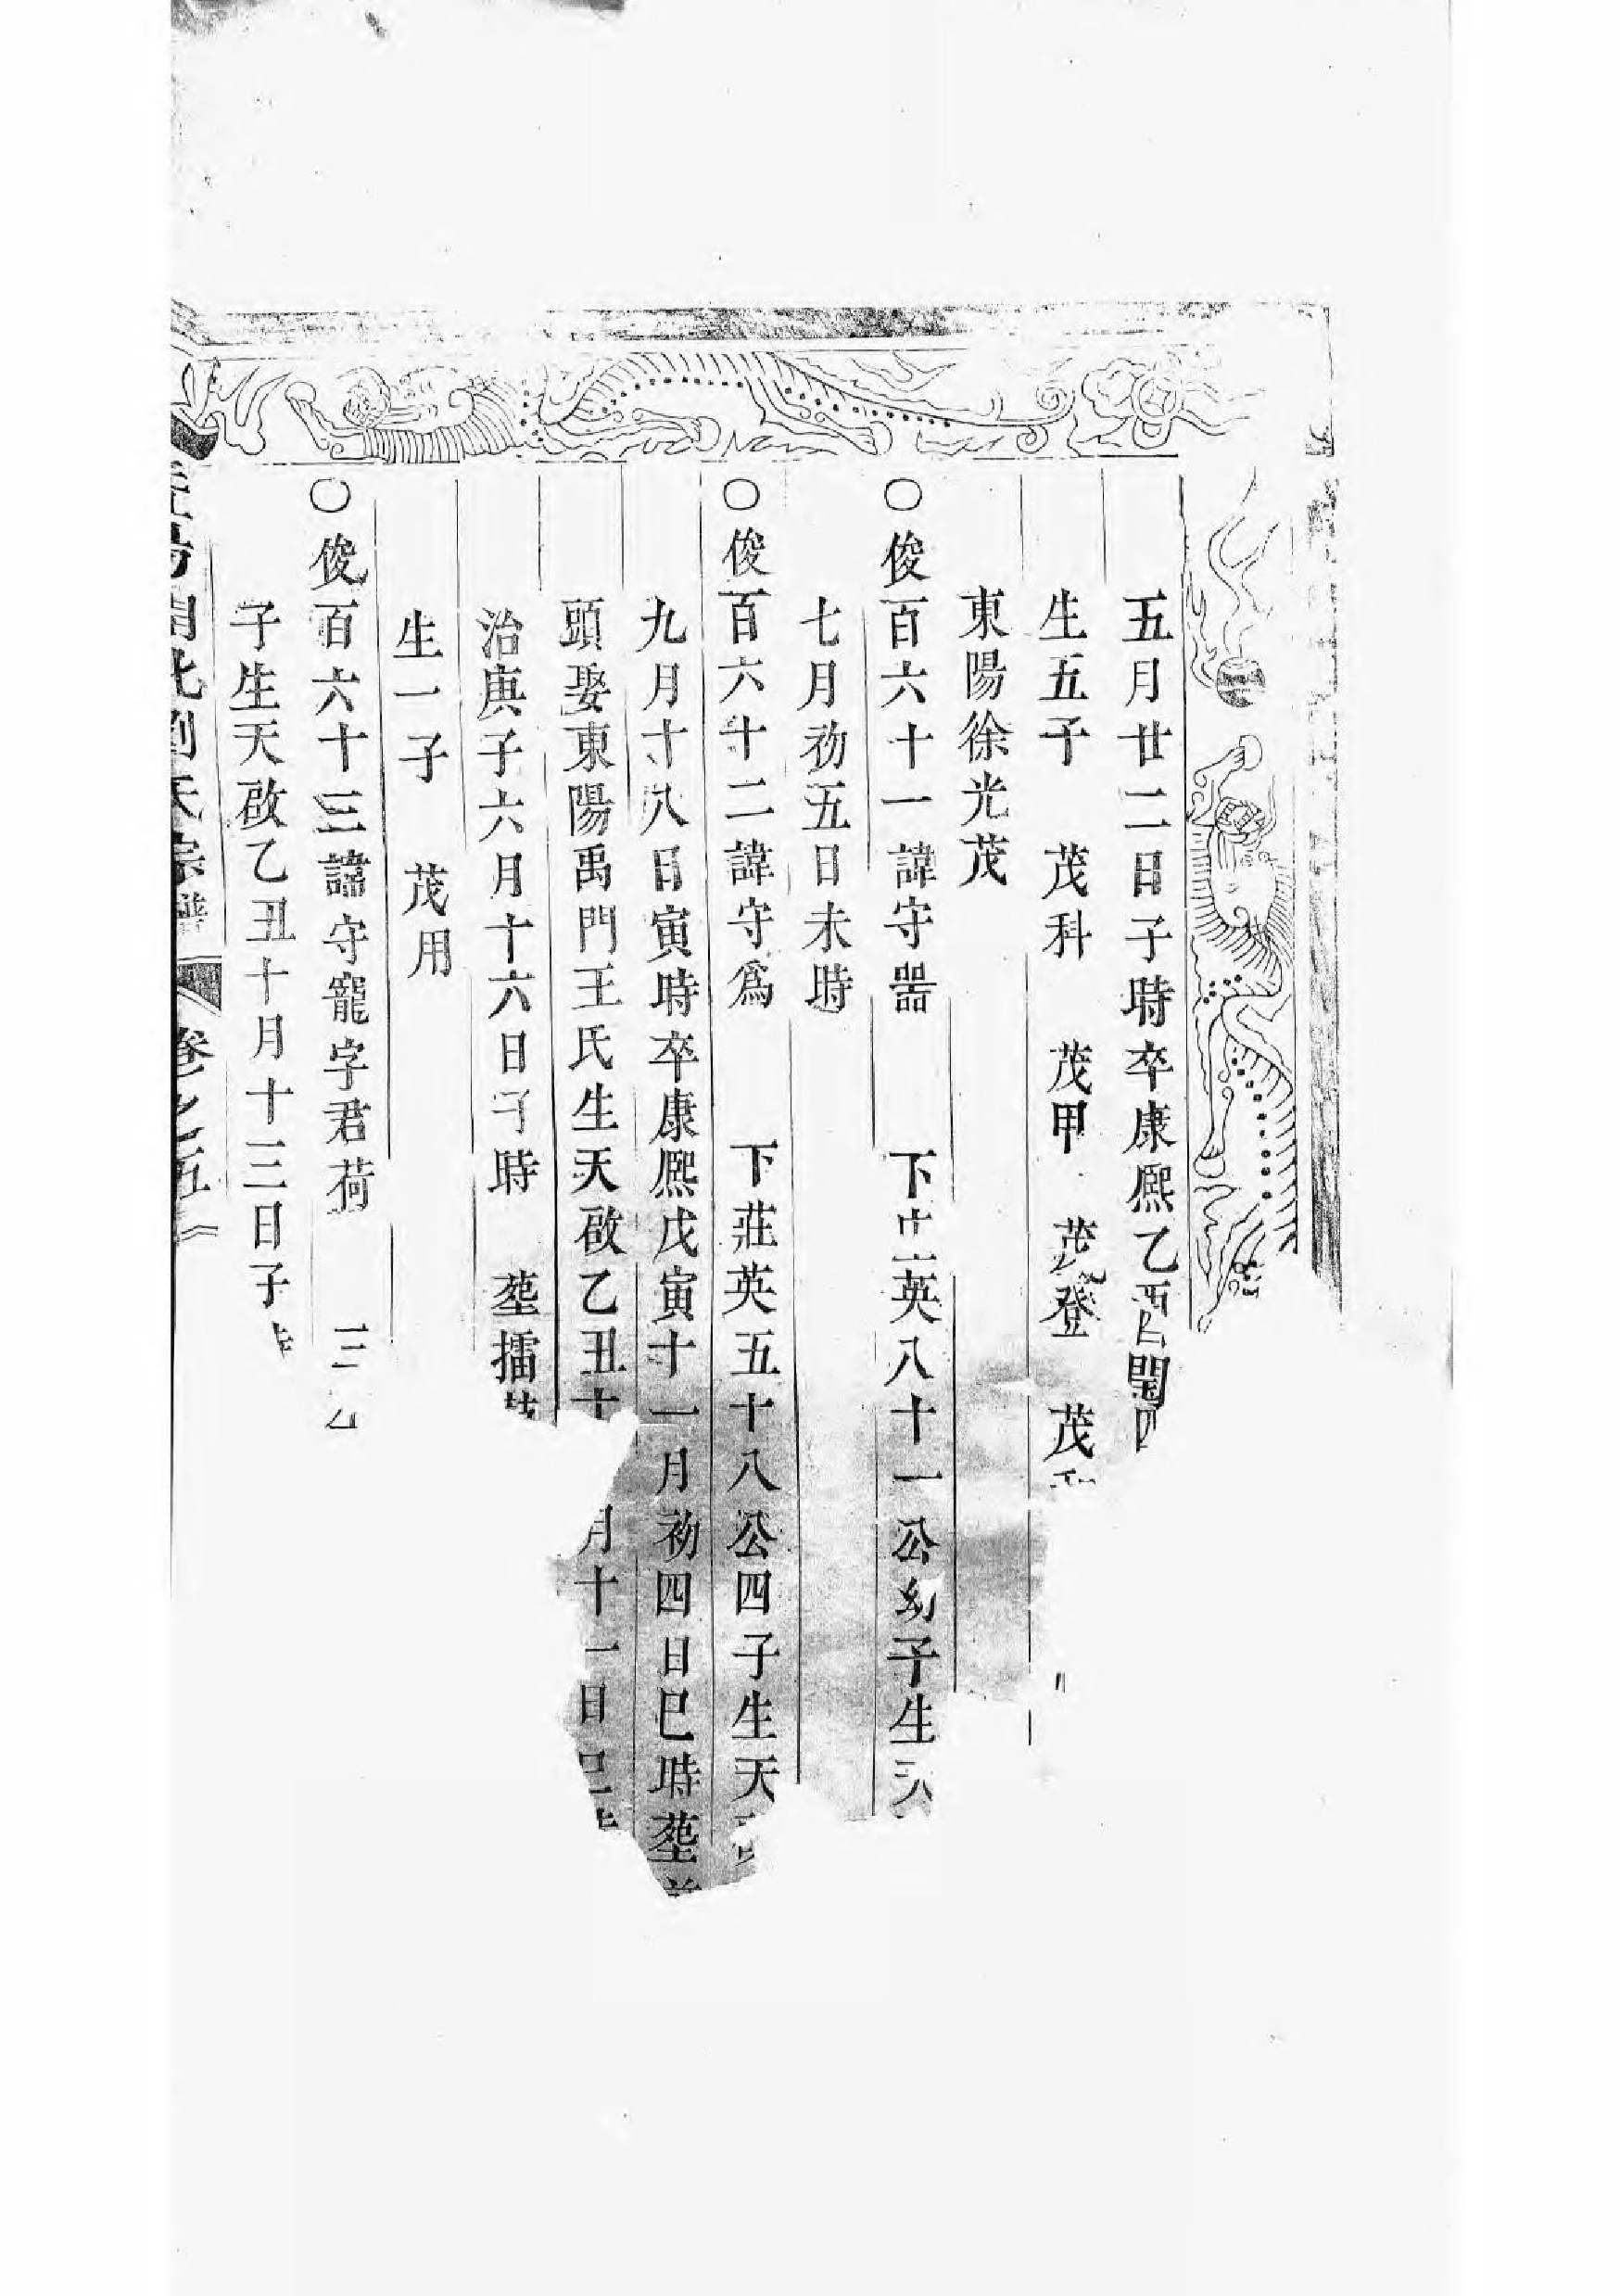 五月廿二日子時卒康熙乙酉閏四
生五子 茂科 茂甲 茂登 茂
東陽徐光茂
○俊百六十一諱守器 下英八十一公幼子生
七月初五日未時
○俊百六十二諱守爲 下莊英五十八公四子生天
九月十八日寅時卒康熙戊寅十一月初四日巳時塟
頭娶東陽禹門王氏生天啟乙丑十月十一日巳
治庚子六月十六日子時 塟擂
生一子 茂用
○俊百六十三諱守寵字君荷
子生天啟乙丑十月十三日子
南北劉氏宗譜 卷之五